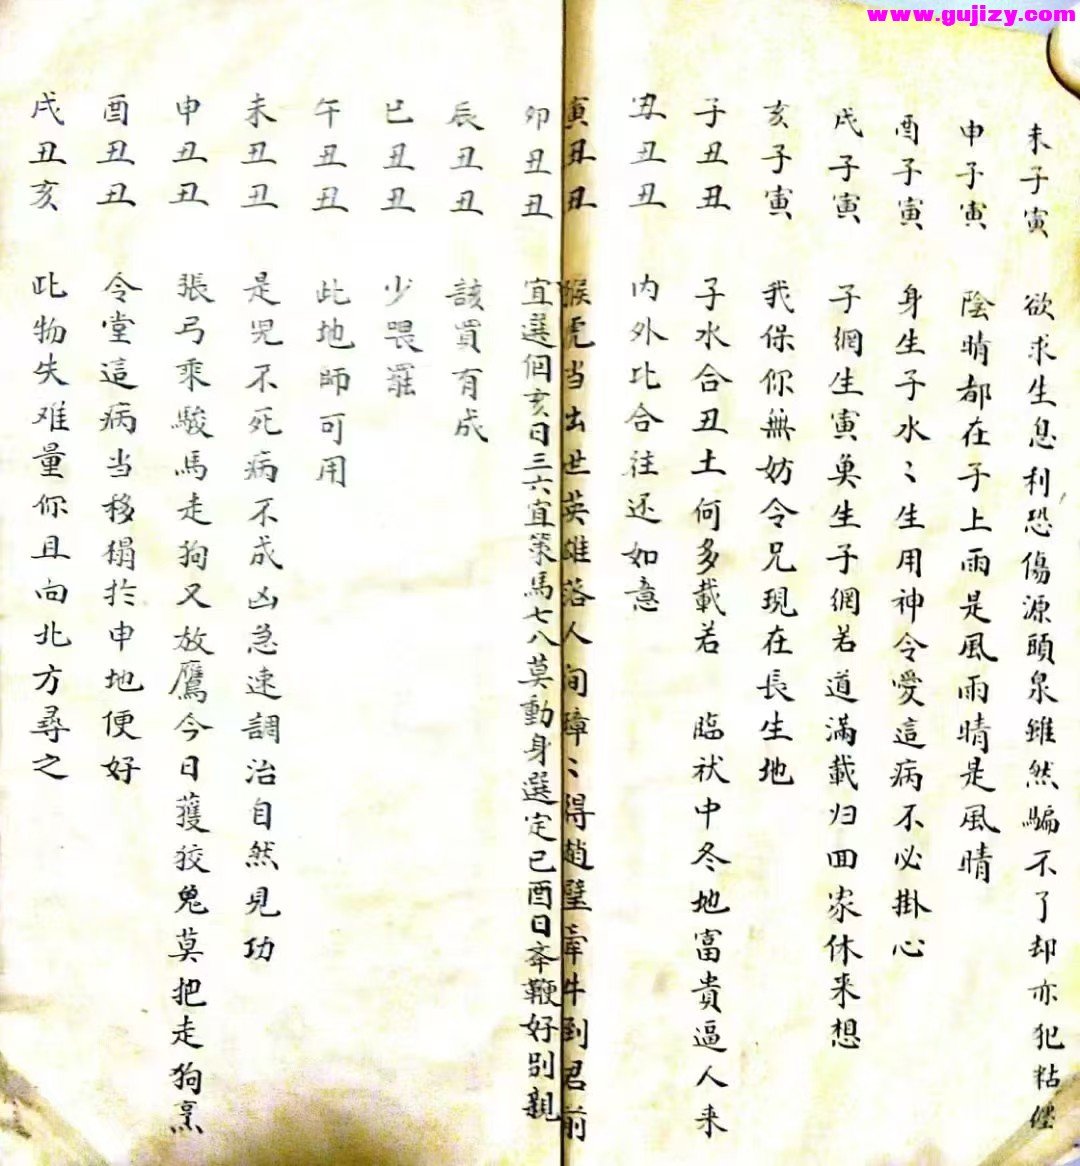 www.gujizy.com
未子寅 欲求生息利恐傷源頭泉雖然騙不了却亦犯粘
申子寅 陰晴都在子上雨是風雨晴是風晴
酉子寅 身生子水〻生用神令愛這病不必掛心
戌子寅 子網生寅奐生子網若道滿載归回家休来想
亥子寅 我保你無妨令兄現在長生地
子丑丑 子水合丑土何多載若 臨袱中冬地富貴逼人来
丑丑丑 内外比合往还如意
寅丑丑 猴虎当出世英雄落人间璋〻得趙璧牽牛到君前
卯丑丑 宜選佀亥日三六宜策馬七八莫動身選定已酉日夲鞭好别親
辰丑丑 該買有成
巳丑丑 少畏罷
午丑丑 此地師可用
未丑丑 是児不死病不成凶急速調治自然見功
申丑丑 張弓乘駿馬走狗又放鷹今日获狡兔莫把走狗烹
酉丑丑 令堂這病当移搨扵申地便好
戌丑亥 此物失难量你且向北方尋之